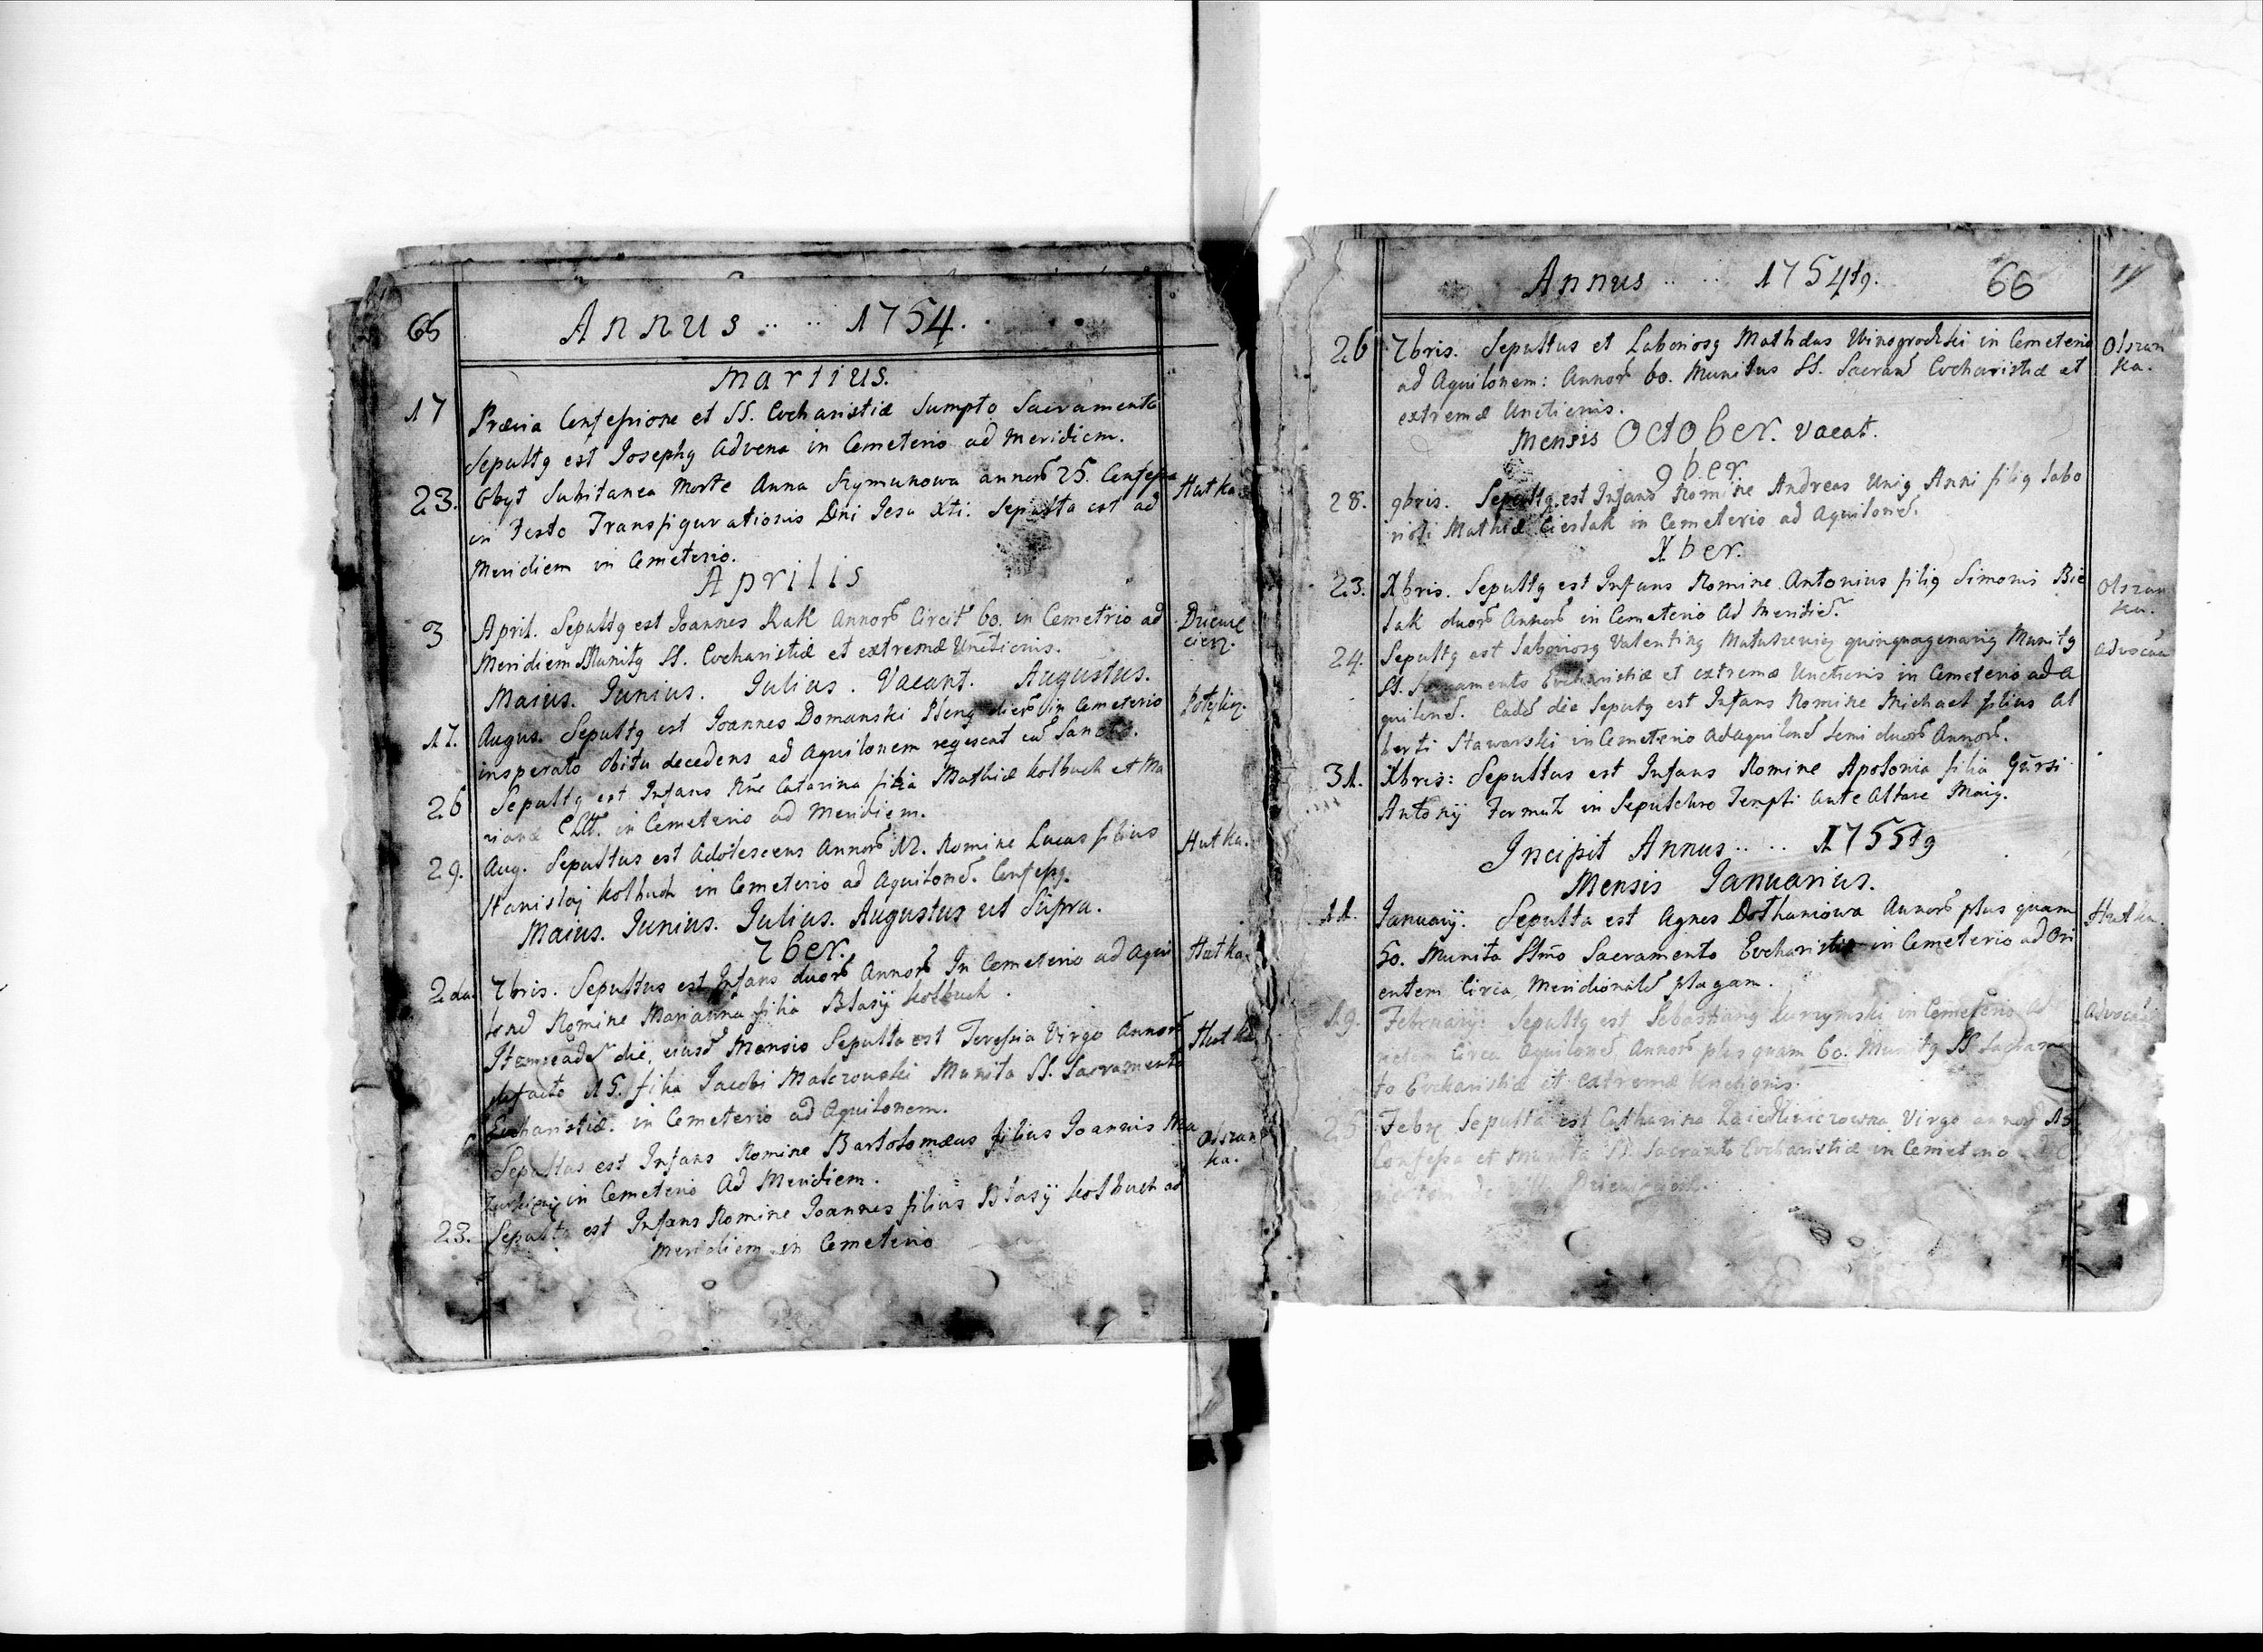 66 Annus .. .. 1754.
Martius.
17 Prævia Confessione et SS. Eucharistiæ Sumpto Sacramento
Sepultg est Josephg Advena in Cemeterio ad Meridiem.
23. Obyt Subitanea Morte Anna Szymunowa annor 25. Confessa Hutka
in Festo Transfigurationis Dni Jesu Xti. Sepulta est ad
Meridiem in Cemeterio.
Aprilis
3 April. Sepultg est Joannes Rak Annor Circit 60. in Cemetrio ad
Meridiem Munitg SS. Eucharistiæ et extremæ Unctionis.
Maius. Junius. Julius. Vacant. Augustus.
17. Augus. Sepultg est Joannes Domanski in Cemeterio
insperato obitu decedens ad Aquilonem
26 Sepultg est Infans Catarina filia Mathiæ Kolbuch et Ma
in Cemeterio ad Meridiem.
29. Aug. Sepultus est Adolescens Annor 12. Nomine Lucas filius Hutka.
Stanislai Kolbuch in Cemeterio ad Aquiloné. Confessg.
Maius. Junius. Julius. Augustus ut Supra.
7ber.
2da 7bris. Sepultus est Infans duor Annor In Cemeterio ad Aqui Hutka
loné Nomine Marianna filia Blasÿ Kolbuch.
die, eiusd Mensis Sepulta est Teressia Virgo Annor Hutka
15. filia Jacobi Malczouski Munita SS. Sacramento
Eucharistiæ. in Cemeterio ad Aquilonem.
Sepultus est Infans Nomine Bartolomæus filius Joannis Olszan
ka.
in Cemeterio Ad Meridiem.
23. Sepultg est Infans Nomine Joannes filius Blasÿ Kolbuch ad
Meridiem in Cemeterio
Annus .. .. 1754tg. 66
26 7bris. Sepultus et Laboriosg Mathdas Winogrodzki in Cemeterio Olszan
ka.
ad Aquilonem: Annor 60. Munitus SS. Eucharistiæ et
extremæ Unctionis.
Mensis October. vacat.
9ber
28. 9bris. Sepultg est Infans Nomine Andreas Unig Anni filig Labo
riosi Mathiæ Cieslak in Cemeterio ad Aquiloné.
Xber.
23. Xbris. Sepultg est Infans Nomine Antonius filig Simonis Bie Olszan
ka.
lak duor Annor in Cemeterio Ad Meridié.
24. Sepultg est Laboriosg Valenting quinquagenarig Munitg
SS. Sacramento Eucharistiæ et extremæ Unctionis in Cemeterio ad A
quiloné. Eadé die Seputg est Infans Nomine Michael filius Al
berti Stawarski in Cemeterio Ad aquiloné Semi duor Annor.
31. Xbris: Sepultus est Infans Nomine Apolonia filia
Antonÿ in Sepulchro Templi Ante Altare
Incipit Annus .. .. 1755tg
Mensis Januarius.
11. Januarÿ. Sepulta est Agnes Annor plus quam Hutka
50. Munita Sacramento Eucharistiæ in Cemeterio ad Ori
entem Circa Meridionalé plagam.
19. Februarÿ: Sepultg est Sebastiang Kurzymski in Cemeterio
Circa Aquiloné, Annor plus quam 60. Munitg SS Sacramen
to Eucharistiæ et extremæ Unctionis.
25 Sepulta est Catharina Virgo annor 15
Confessa et Munita SS. Eucharistiæ in Cemeterio